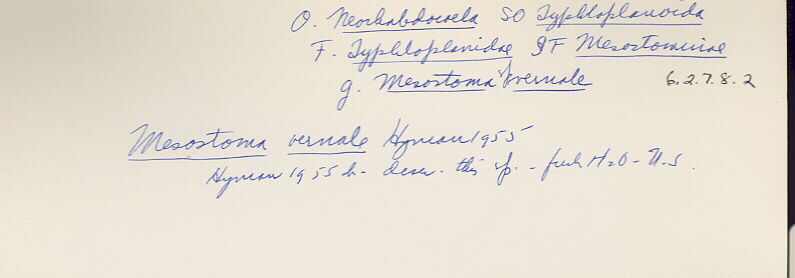 O. Neorhabdocoela SO Typhloplanoida
F. Typhloplanidae SF Mesostominae
g. Mesostoma vernale 6.2.7.8.2
Mesostoma vernale Hyman 1955
Hyman 1955 b - descr. this sp. - fresh H2O - U.S.